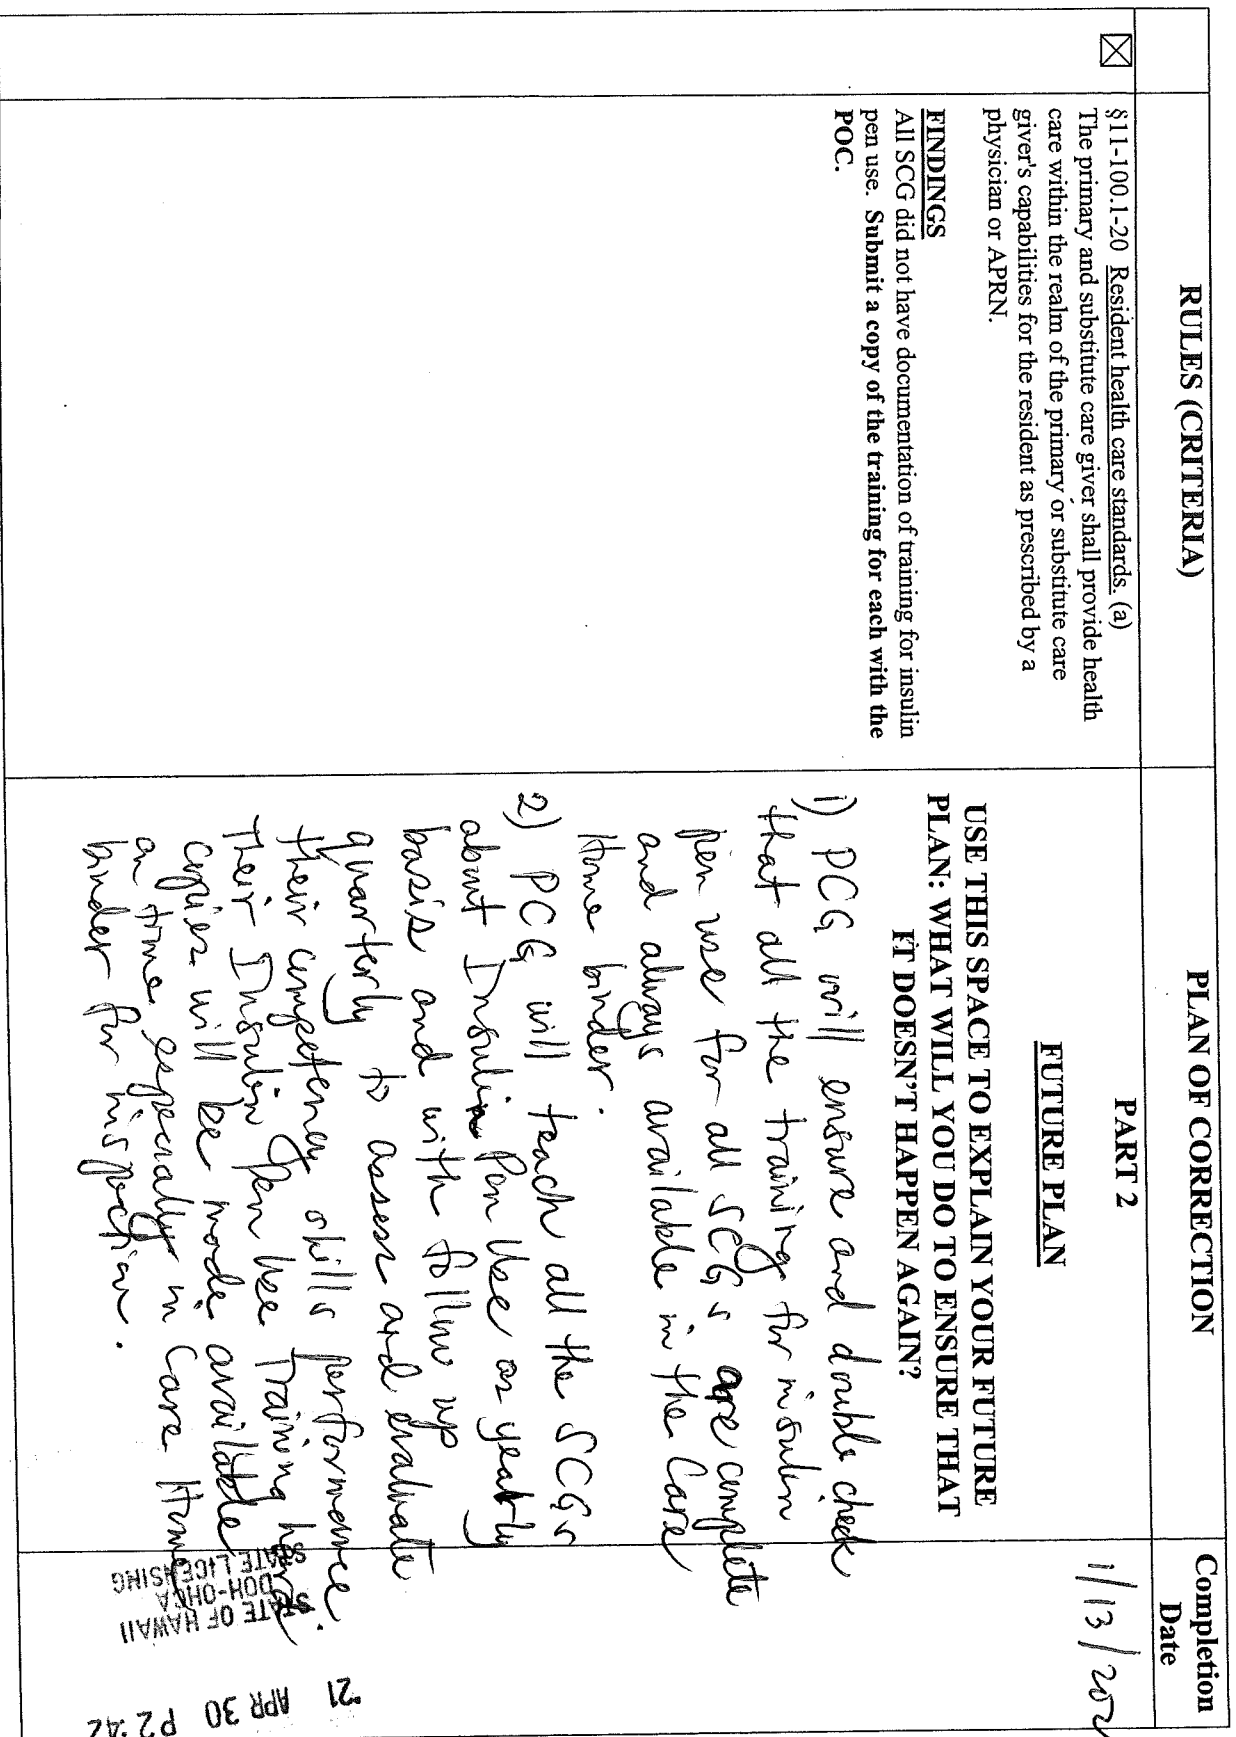 RULES (CRITERIA)
PLAN OF CORRECTION
Completion
Date
☒
§11-100.1-20 Resident health care standards. (a)
The primary and substitute care giver shall provide health
care within the realm of the primary or substitute care
giver's capabilities for the resident as prescribed by a
physician or APRN.
FINDINGS
All SCG did not have documentation of training for insulin
pen use. Submit a copy of the training for each with the
POC.
PART 2
FUTURE PLAN
USE THIS SPACE TO EXPLAIN YOUR FUTURE
PLAN: WHAT WILL YOU DO TO ENSURE THAT
IT DOESN'T HAPPEN AGAIN?
1) PCG will ensure and double check
that all the training for insulin
pen use for all SCG's are complete
and always available in the Care
Home binder.
2) PCG will teach all the SCG's
about Insulin Pen Use as yearly
basis and with follow up
quarterly to assess and evaluate
their competency skills performance.
Their Insulin Pen Use Training
copies will be made available
on time especially in Care Home
binder for inspection.
1/13/202
STATE OF HAWAII
DOH-OHCA
STATE LICENSING
'21 APR 30 P2:42